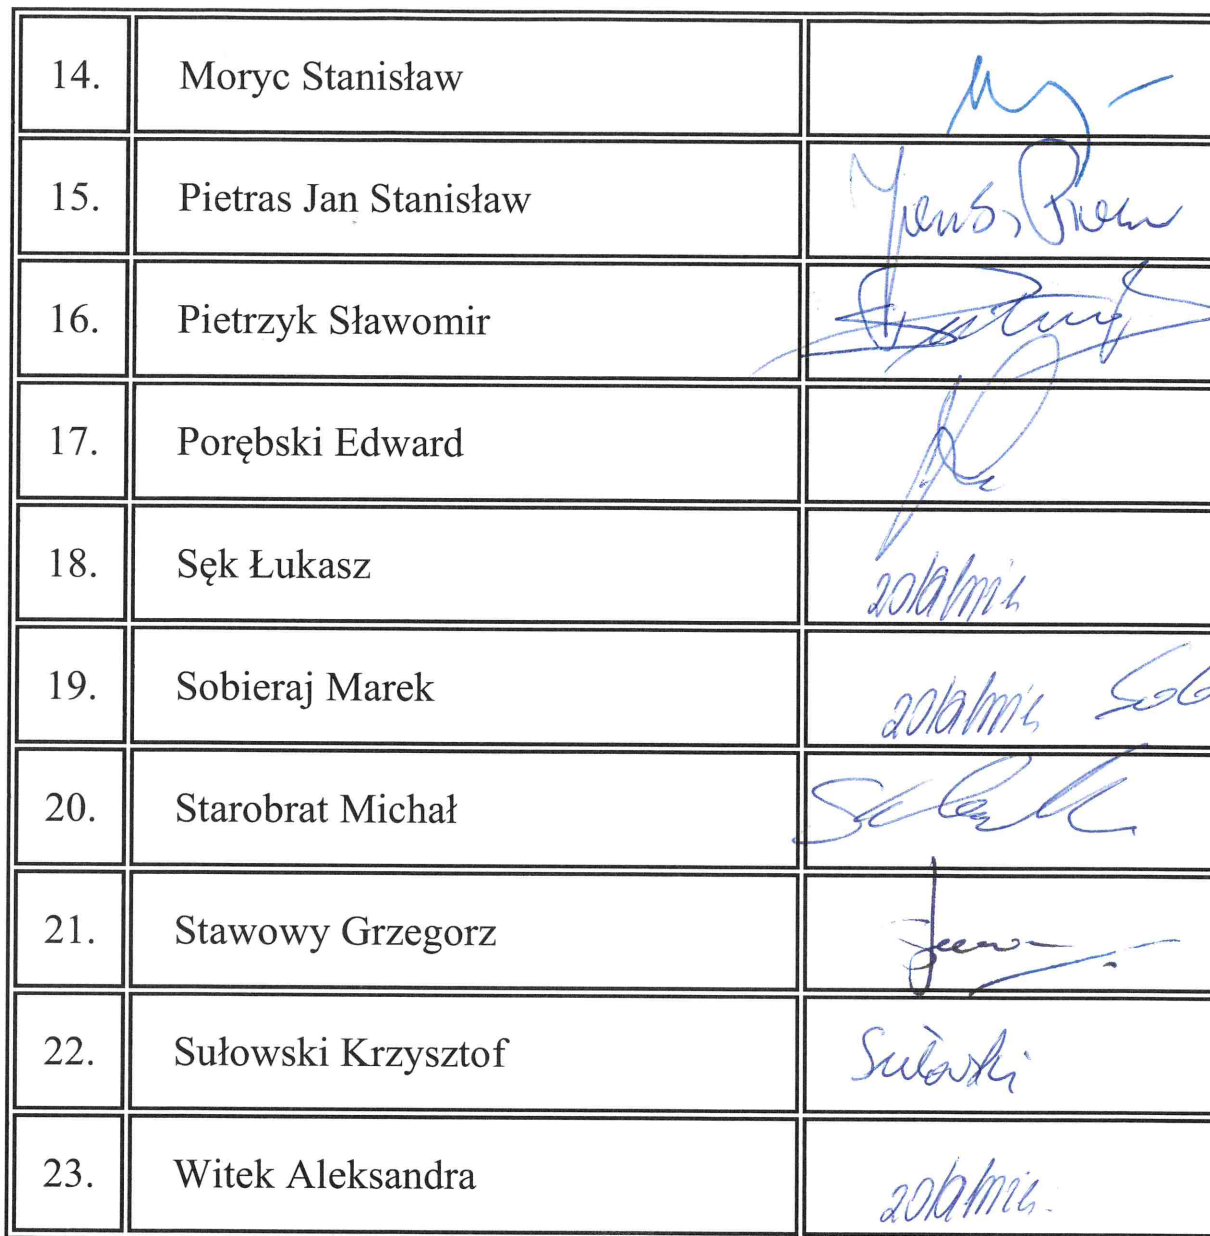 14. Moryc Stanisław
15. Pietras Jan Stanisław
16. Pietrzyk Sławomir
17. Porębski Edward
18. Sęk Łukasz zdalnie
19. Sobieraj Marek zdalnie
20. Starobrat Michał
21. Stawowy Grzegorz
22. Sułowski Krzysztof Sułowski
23. Witek Aleksandra zdalnie